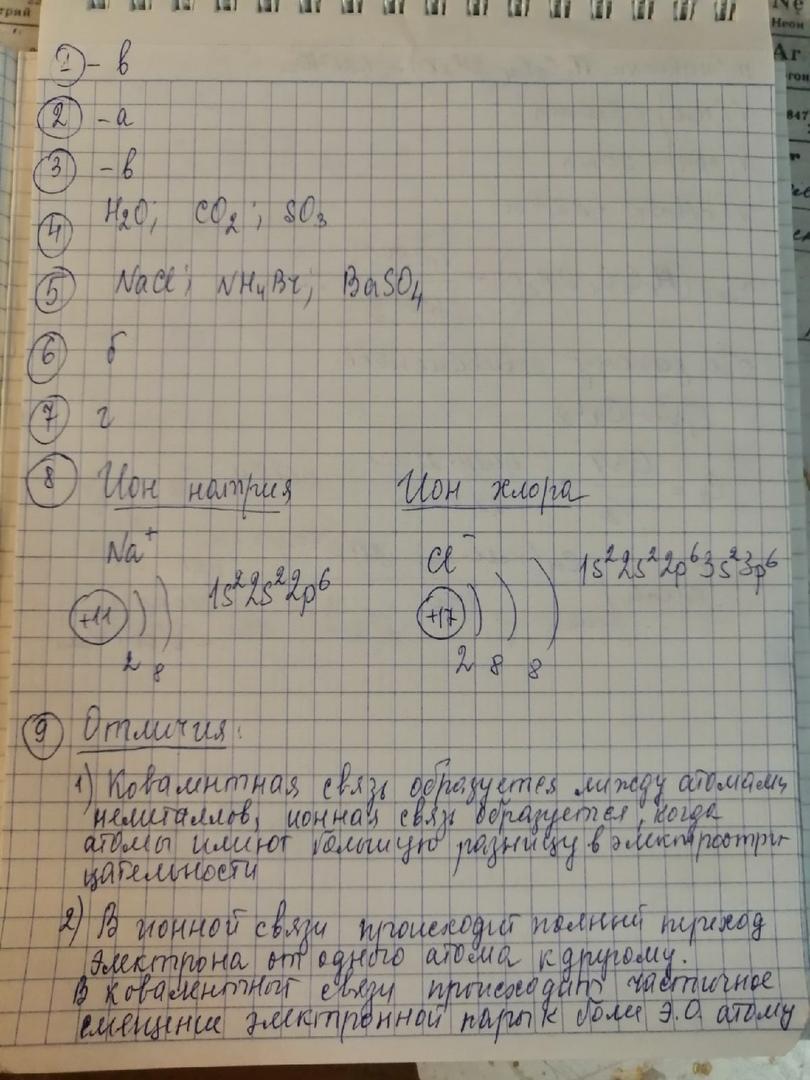 трий
Ne
Неон
Ar
1 - в
2 - а
3 - в
4 H₂O; CO₂; SO₃
5 NaCl; NH₄Br; BaSO₄
6 б
7 г
8 Ион натрия Ион хлора
Na⁺ Cl⁻
+11 2 8 1s²2s²2p⁶ +17 2 8 8 1s²2s²2p⁶3s²3p⁶
9 Отличия:
1) Ковалентная связь образуется между атомами
неметаллов, ионная связь образуется, когда
атомы имеют большую разницу в электроотри-
цательности
2) В ионной связи происходит полный переход
электрона от одного атома к другому.
В ковалентной связи происходит частичное
смещение электронной пары к более Э.О. атому